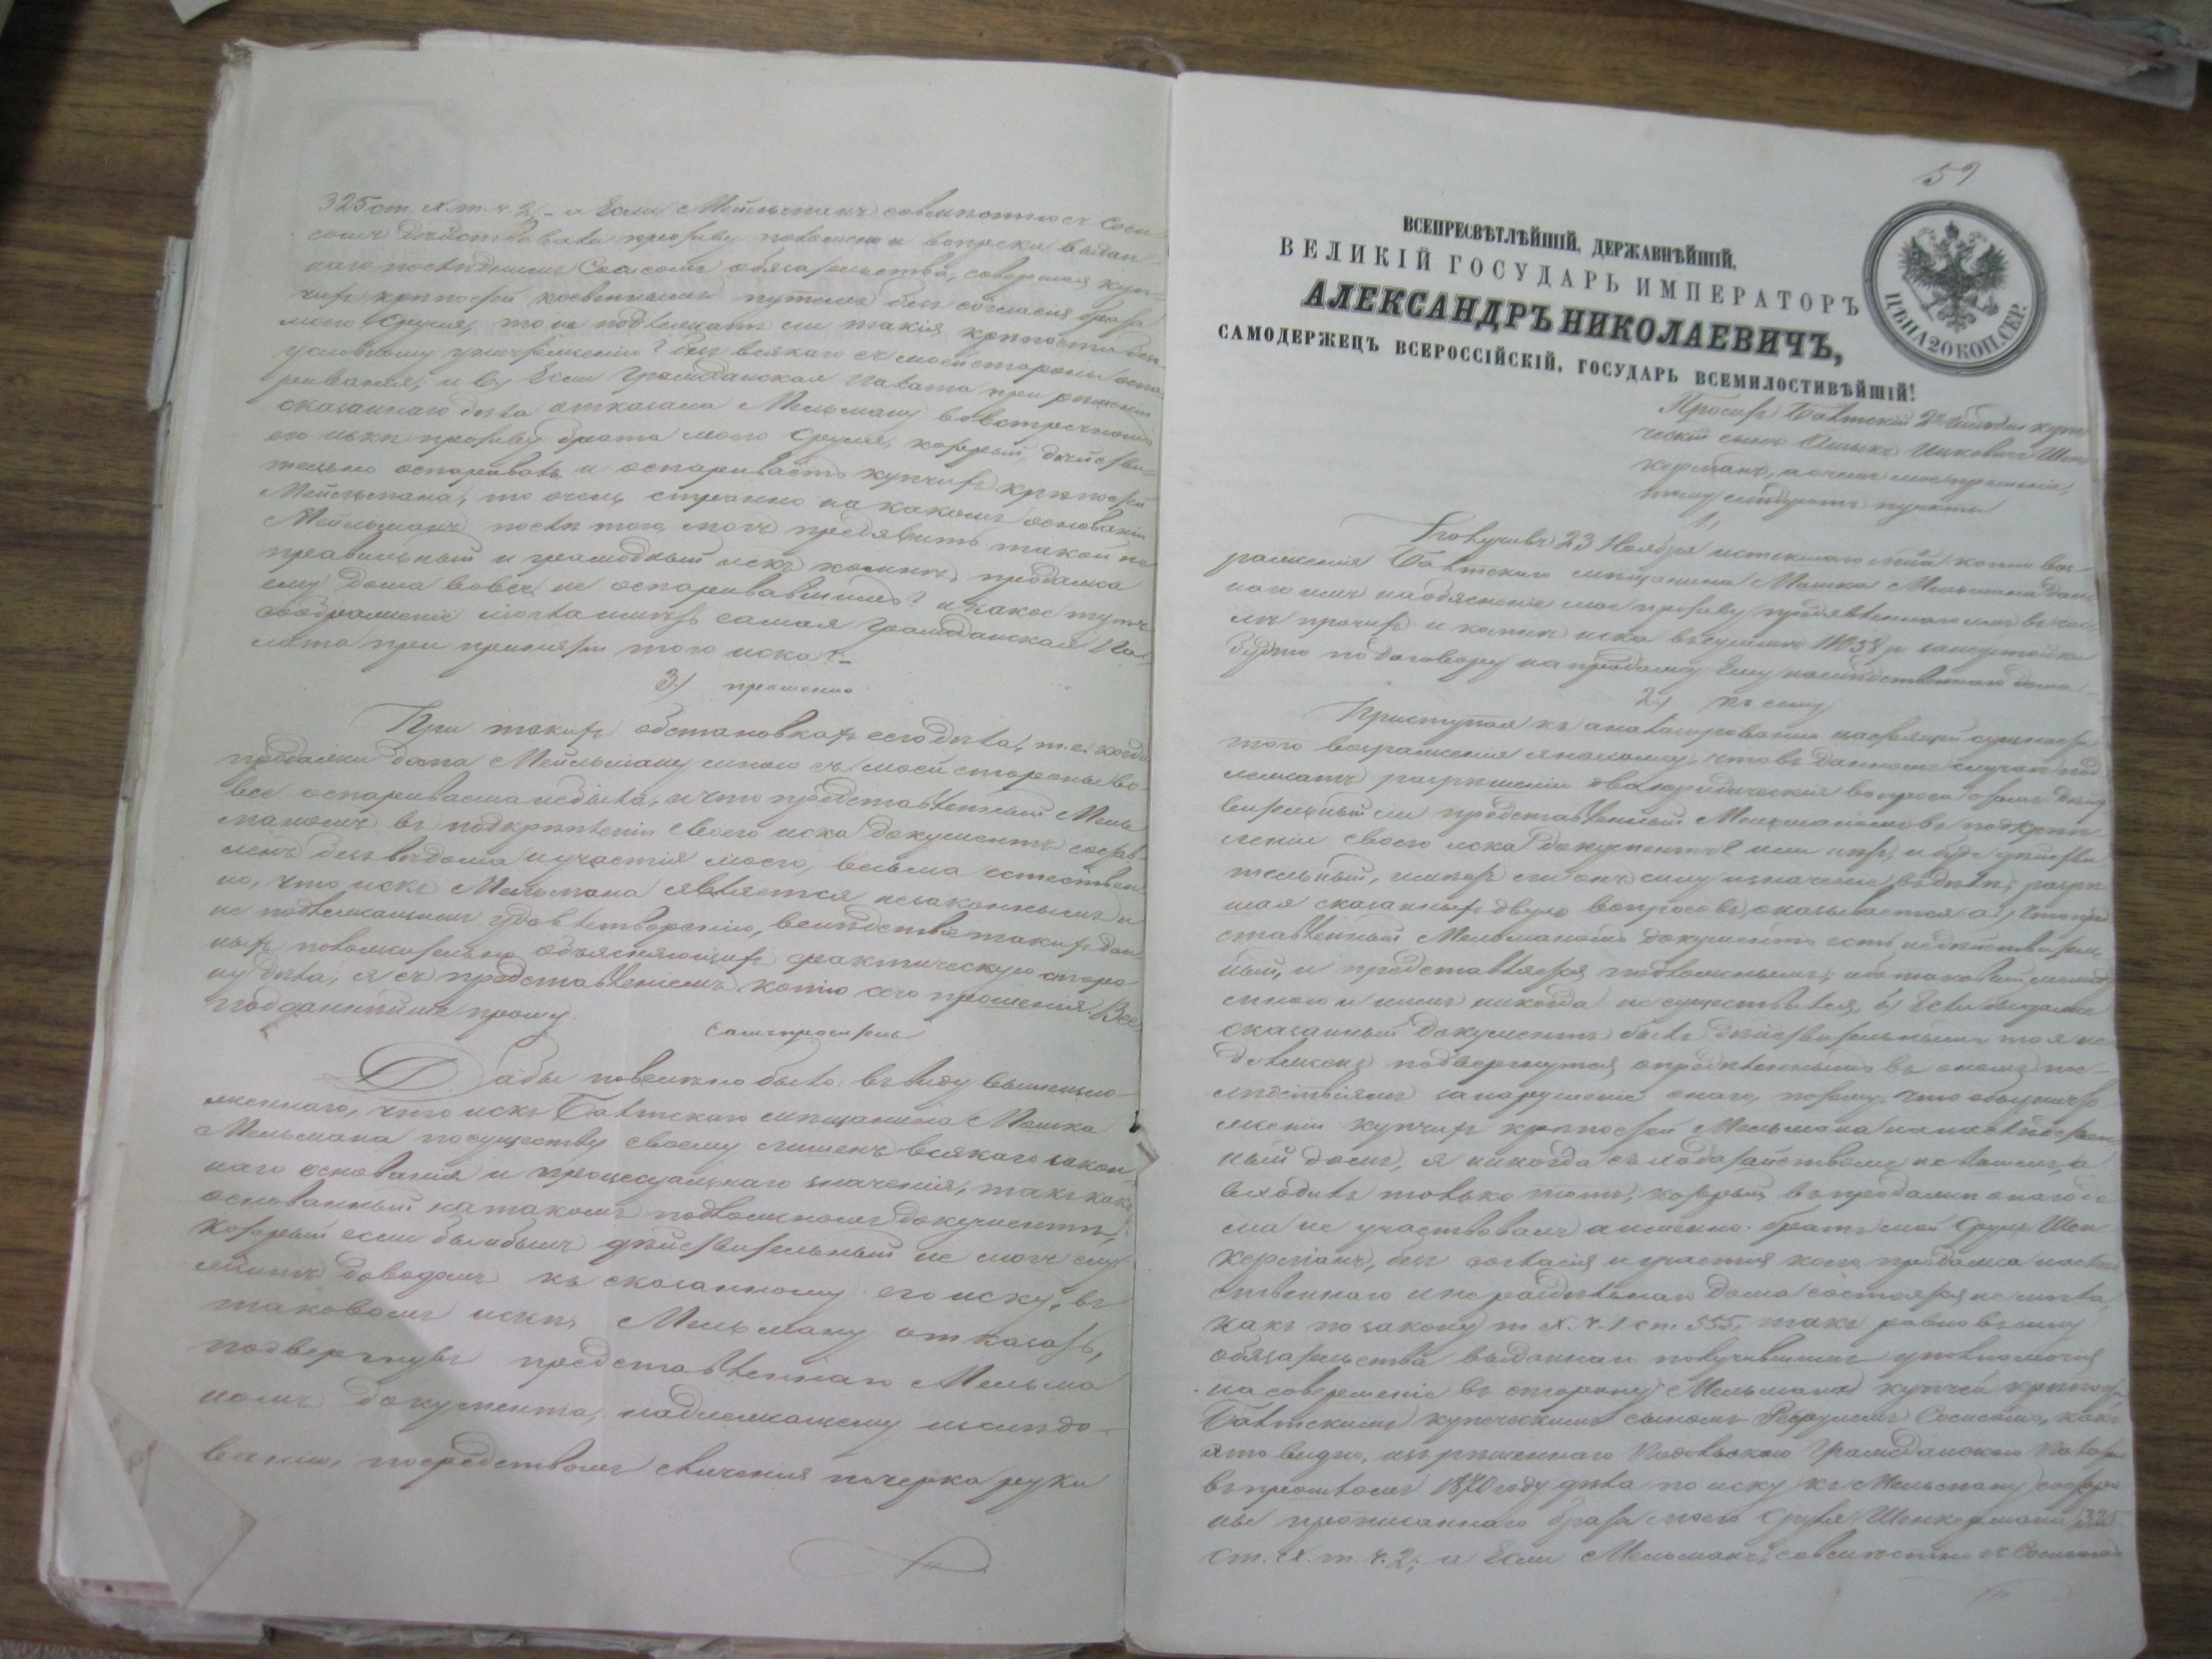 325 ст. X. т. ч. 2. – а Если Мейльманъ совмѣстно съ Соси
сомъ дѣйствовали противу и вопреки выдан
наго послѣднимъ Сосисомъ обязательства, совершая куп
чихъ крѣпостей косвеннымъ путемъ безъ согласія брата
моего Сруля, то не подлежатъ ли такія крѣпости без
условному уничтоженію? безъ всякаго съ моей стороны оспа
риванія; и в., Если Гражданская Палата при рѣшеніи
сказаннаго дѣла отказала Мельману во встречномъ
его искѣ противу брата моего Сруля, который, дѣйстви
тельно оспаривать и оспариваетъ купчихъ крѣпостей
Мейльмана, то очень странно на какомъ основаніи
Мейльманъ послѣ того, могъ предявить такой не
правильный и искъ ко мнѣ, продажа
ему дома вовсе не оспаривавшимъ? и какое тутъ
соображеніе могла имѣть самая Гражданская Па
лата при принятіи того иска? –
3./ прошенію
При такихъ обстановкахъ сего дѣла, т. е. когда
продажи дома Мейльману мною съ моей стороны во
все оспариваема не была, и что представленный Мель
маномъ въ подкрѣпленіи своего иска документъ состав
ленъ безъ вѣдома и участія моего, весьма естествен
но, что искъ Мельмана является незаконнымъ и
не подлежащимъ удовлетворенію, вслѣдствіе такихъ дан
ныхъ положительно объясняющихъ фактическую сторо
ну дѣла, я съ представленіемъ копію сего прошенія. Все
подданнѣйше прошу.
Дабы повелѣно было: въ виду вышеизло
женнаго, что искъ Балтскаго мѣщанина Мошка
Мельмана по существу своему лишенъ всякаго закон
наго основанія и процесуальнаго значенія, такъ какъ
основанный на такомъ подложномъ документѣ,
который если бы и былъ дѣйствительный не могъ слу
жить доводомъ къ сказанному его иску, въ
таковомъ искѣ Мельману отказать,
подвергнувъ представленнаго Мельма
номъ документа, надлежащему изслѣдо
ванію, посредствомъ сличенія почерка руки
59
ВСЕПРЕСВѢТЛѢЙШІЙ, ДЕРЖАВНѢЙШІЙ,
ВЕЛИКІЙ ГОСУДАРЬ ИМПЕРАТОРЪ
АЛЕКСАНДРЪ НИКОЛАЕВИЧЪ,
САМОДЕРЖЕЦЪ ВСЕРОССІЙСКІЙ, ГОСУДАРЬ ВСЕМИЛОСТИВѢЙШІЙ!
ЦѢНА 20 КОП. СЕР.
Проситъ Балтскій 2й гильдіи купе
ческій сынъ Ицковичъ Шен
керманъ, а о чемъ мое прошеніе,
тому слѣдуютъ пункты
1,
Получивъ 23 Ноября истекшаго копію воз
раженія Балтскаго мѣщанина Мошка Мельмана дан
наго имъ на объясненіе мое противу предявленнаго имъ въ чис
лѣ прочихъ и ко мнѣ иска въ суммѣ р
будто по договору на продажу Ему наслѣдственнаго дома
2./ къ сему
Приступая къ анализированію настоящей сущности
того возраженія я нахожу, что въ данномъ случаѣ под
лежатъ разрѣшенію два юридическія вопроса
ли представленный Мельманомъ въ подкрѣп
леніи своего иска документъ? или нѣтъ, и
тельный, имѣетъ ли онъ силу и значеніе въ дѣлѣ; разрѣ
шая сказанныхъ двухъ вопросовъ, оказывается: а) Что пред
ставленный Мельманомъ документъ есть недѣйствитель
ный, и представляется подложнымъ; ибо таковый между
мною и имъ никогда не существовался, б) Если бы даже
сказанный документъ былъ дѣйствительнымъ, то я не
долженъ подвергнутся опредѣленнымъ въ ономъ по
слѣдствіямъ за нарушеніе онаго, потому, что объ уничто
женіи купчихъ крѣпостей Мельмана на наслѣдствен
ный домъ, я никогда съ ходатайствомъ не вошелъ, а
входилъ только тотъ, который въ продажѣ онаго до
ма не участвовалъ а именно: братъ мой Сруль Шен
керманъ, безъ согласія и участія коего, продажа наслѣд
ственнаго и нераздѣльнаго дома состоятся не могла,
какъ по закону т X. ч. 1. ст. 555, такъ равно въ силу
обязательства выданнаго получившимъ уполномочія
на совершеніе въ сторону Мельмана купчей крѣпости
Балтскимъ купеческимъ сыномъ Сосисомъ, какъ
это видно, изъ рѣшеннаго Подольскою Гражданскою Палатою
въ прошломъ 1870 году дѣла по иску къ Мельману со сторо
ны прописаннаго брата моего Сруля Шенкермана 325
ст. X. т. ч. 2; а Если Мельманъ, совмѣстно съ Сосисомъ